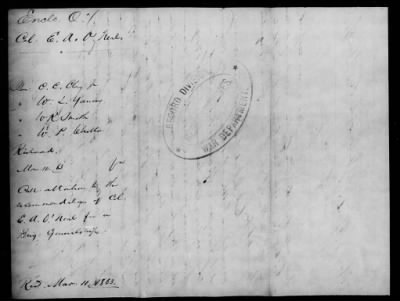 Enclo. O. 1/.
Col. E. A. O'Neal
Hon C. C. Clay Jr
" W. L. Yancey
" W R Smith
" W. P. Chilton
Richmond.
Mar 11, 63
Call attention to the
recommendation of Col
E. A. O'Neal for a
Brig. Generalship.
Recd. Mar. 11, 1863.
RECORD DIVISION
WAR DEPARTMENT